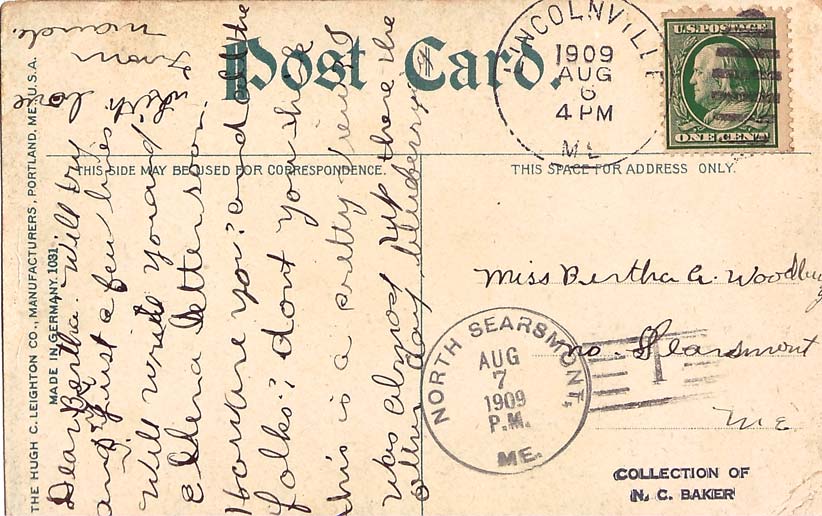 Post Card.
THIS SIDE MAY BE USED FOR CORRESPONDENCE.
THIS SPACE FOR ADDRESS ONLY.
THE HUGH C. LEIGHTON CO., MANUFACTURERS, PORTLAND, ME., U.S.A.
MADE IN GERMANY. 1031.
LINCOLNVILLE
1909
AUG
6
4 PM
ME.
U.S. POSTAGE
ONE CENT
Dear Bertha. Will try
and just a few lines
Will write you and
Ellena letter soon.
How are you? and all the
folks? dont you think
this is a pretty view? I
was almost up there the
other day blueberrying
with love
from
Maude.
Miss Bertha A. Woodbury
No. Searsmont
Me
NORTH SEARSMONT,
AUG
7
1909
P.M.
ME.
1
COLLECTION OF
N. C. BAKER